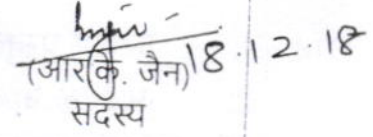 (आर.के. जैन) 18.12.18
सदस्य